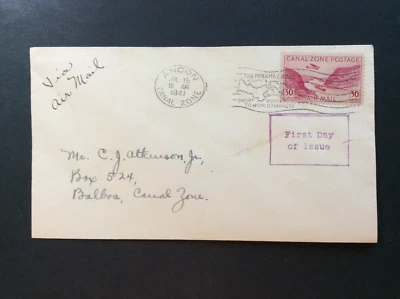 Via
Air Mail
ANCON
JUL 15
10 AM
1941
CANAL ZONE
THE PANAMA CANAL
SHORT
TO WORLD MARKETS
CANAL ZONE POSTAGE
30 30
AIR MAIL
First Day
of Issue
Mr. C. J. Atkinson, Jr,
Box 524,
Balboa, Canal Zone.